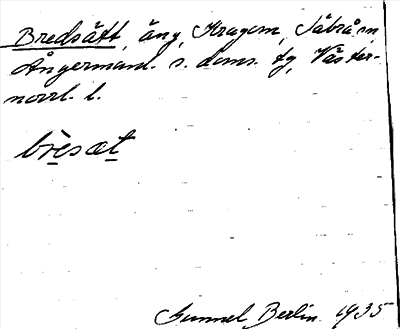 Bredsätt, äng, Kragom, Säbrå sn,
Ångermanl. s. doms. tg, Väster-
norrl. l.
brèsæt
Gunnel Berlin 1935